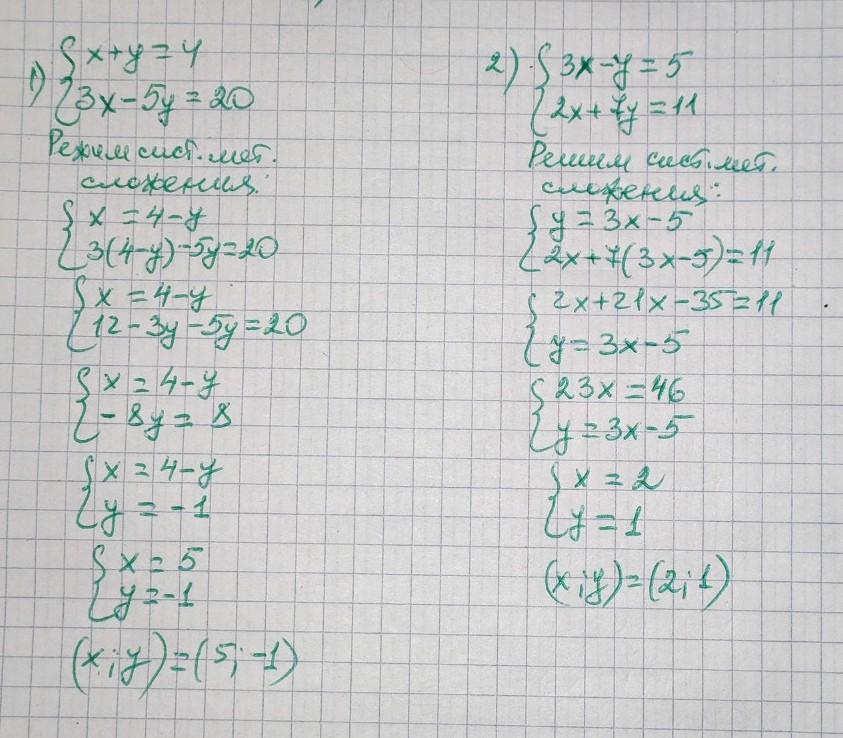 1) { x+y=4
3x-5y=20
Решим сист. мет.
сложения:
{ x = 4-y
3(4-y)-5y=20
{ x = 4-y
12-3y-5y=20
{ x = 4-y
-8y = 8
{ x = 4-y
y = -1
{ x = 5
y = -1
(x;y)=(5;-1)
2) { 3x-y=5
2x+7y=11
Решим сист. мет.
сложения:
{ y=3x-5
2x+7(3x-5)=11
{ 2x+21x-35=11
y=3x-5
{ 23x=46
y=3x-5
{ x = 2
y = 1
(x;y)=(2;1)